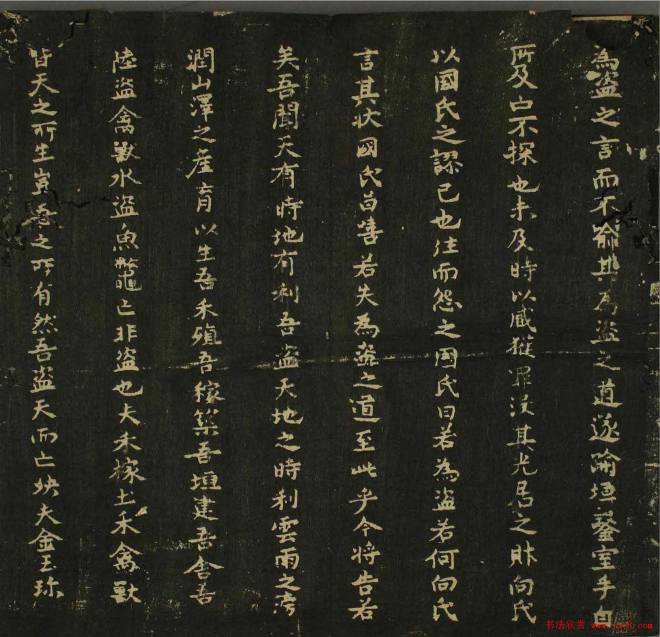 為盜之言而不喻其為盜之道遂踰垣鑿室手目
所及亡不探也未及時以臧獲罪沒其先居之財向氏
以國氏之謬已也往而怨之國氏曰若為盜若何向氏
言其狀國氏曰嘻若失為盜之道至此乎今將告若
矣吾聞天有時地有利吾盜天地之時利雲雨之滂
潤山澤之產育以生吾禾殖吾稼築吾垣建吾舍吾
陸盜禽獸水盜魚鼈亡非盜也夫禾稼土木禽獸
皆天之所生豈吾之所有然吾盜天而亡殃夫金玉珎
书法欣赏